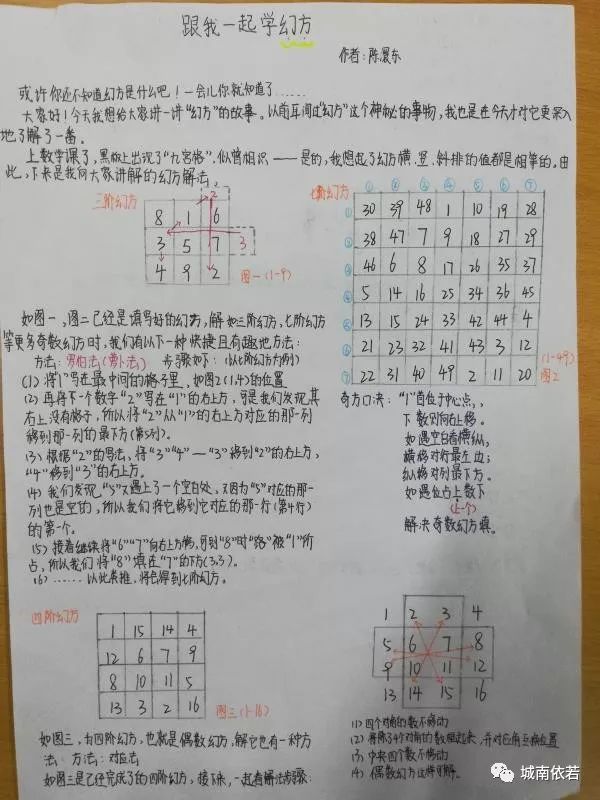 跟我一起学幻方
作者:陈濃东
或许你还不知道幻方是什么吧!一会儿你就知道了……
大家好!今天我想给大家讲一讲“幻方”的故事。以前耳闻过“幻方”这个神秘的事物,我也是在今天才对它更深入
地了解了一番。
上数学课了,黑板上出现了“九宫格”.似曾相识——是的,我想起了幻方横、竖、斜排的值都是相等的。由
此,下来是我向大家讲解的幻方解法
三阶幻方
2
8 1 6
3 5 7 3
4 9 2
图一(1-9)
七阶幻方
① ② ③ ④ ⑤ ⑥ ⑦
① 30 39 48 1 10 19 28
② 38 47 7 9 18 27 29
③ 46 6 8 17 26 35 37
④ 5 14 16 25 34 36 45
⑤ 13 15 24 33 42 44 4
⑥ 21 23 32 41 43 3 12
⑦ 22 31 40 49 2 11 20
(1-49)
图2
如图一,图二已经是填写好的幻方,解如三阶幻方,七阶幻方
等更多奇数幻方时,我们有以下一种快捷且有趣地方法:
方法:罗伯法(萝卜法) 步骤如下:(以七阶幻方为例)
(1)将“1”写在最中间的格子里,如图2(1,4)的位置
(2)再将下一个数字“2”写在“1”的右上方,可是我们发现其
右上没有格子,所以将“2”从“1”的右上方对应的那一列
移到那一列的最下方(第5列)。
(3)根据“2”的写法,将“3”“4”——“3”移到“2”的右上方,
“4”移到“3”的右上方。
(4)我们发现,“5”又遇上了一个空白处,又因为“5”对应的那一
列也是空的,所以我们将它移到它对应的那一行(第4行)
的第一个。
(5)接着继续将“6”“7”向右上方移,可到“8”时“路”被“1”所
占,所以我们将“8”填在“7”的下方(3,3)。
(6)……以此类推,将会得到七阶幻方。
奇方口决:“1”首位于中心点,
下数则向右上移。
如遇空白看横纵,
横移对行最左边;
纵移对列最下方。
如遇位占上数下
(上一个)
解决奇数幻方填。
四阶幻方
1 15 14 4
12 6 7 9
8 10 11 5
13 3 2 16
图三(1-16)
1 2 3 4
5 6 7 8
9 10 11 12
13 14 15 16
如图三,为四阶幻方,也就是偶数幻方,解它也有一种方
法:方法:对应法
如图三是已经完成了的四阶幻方,接下来,一起看解法步骤:
(1)四个对角的数不移动
(2)将除了4个对角的数框起来,并对应角互换位置
(3)中央四个数不移动
(4)偶数幻方这样可解。
城南依若